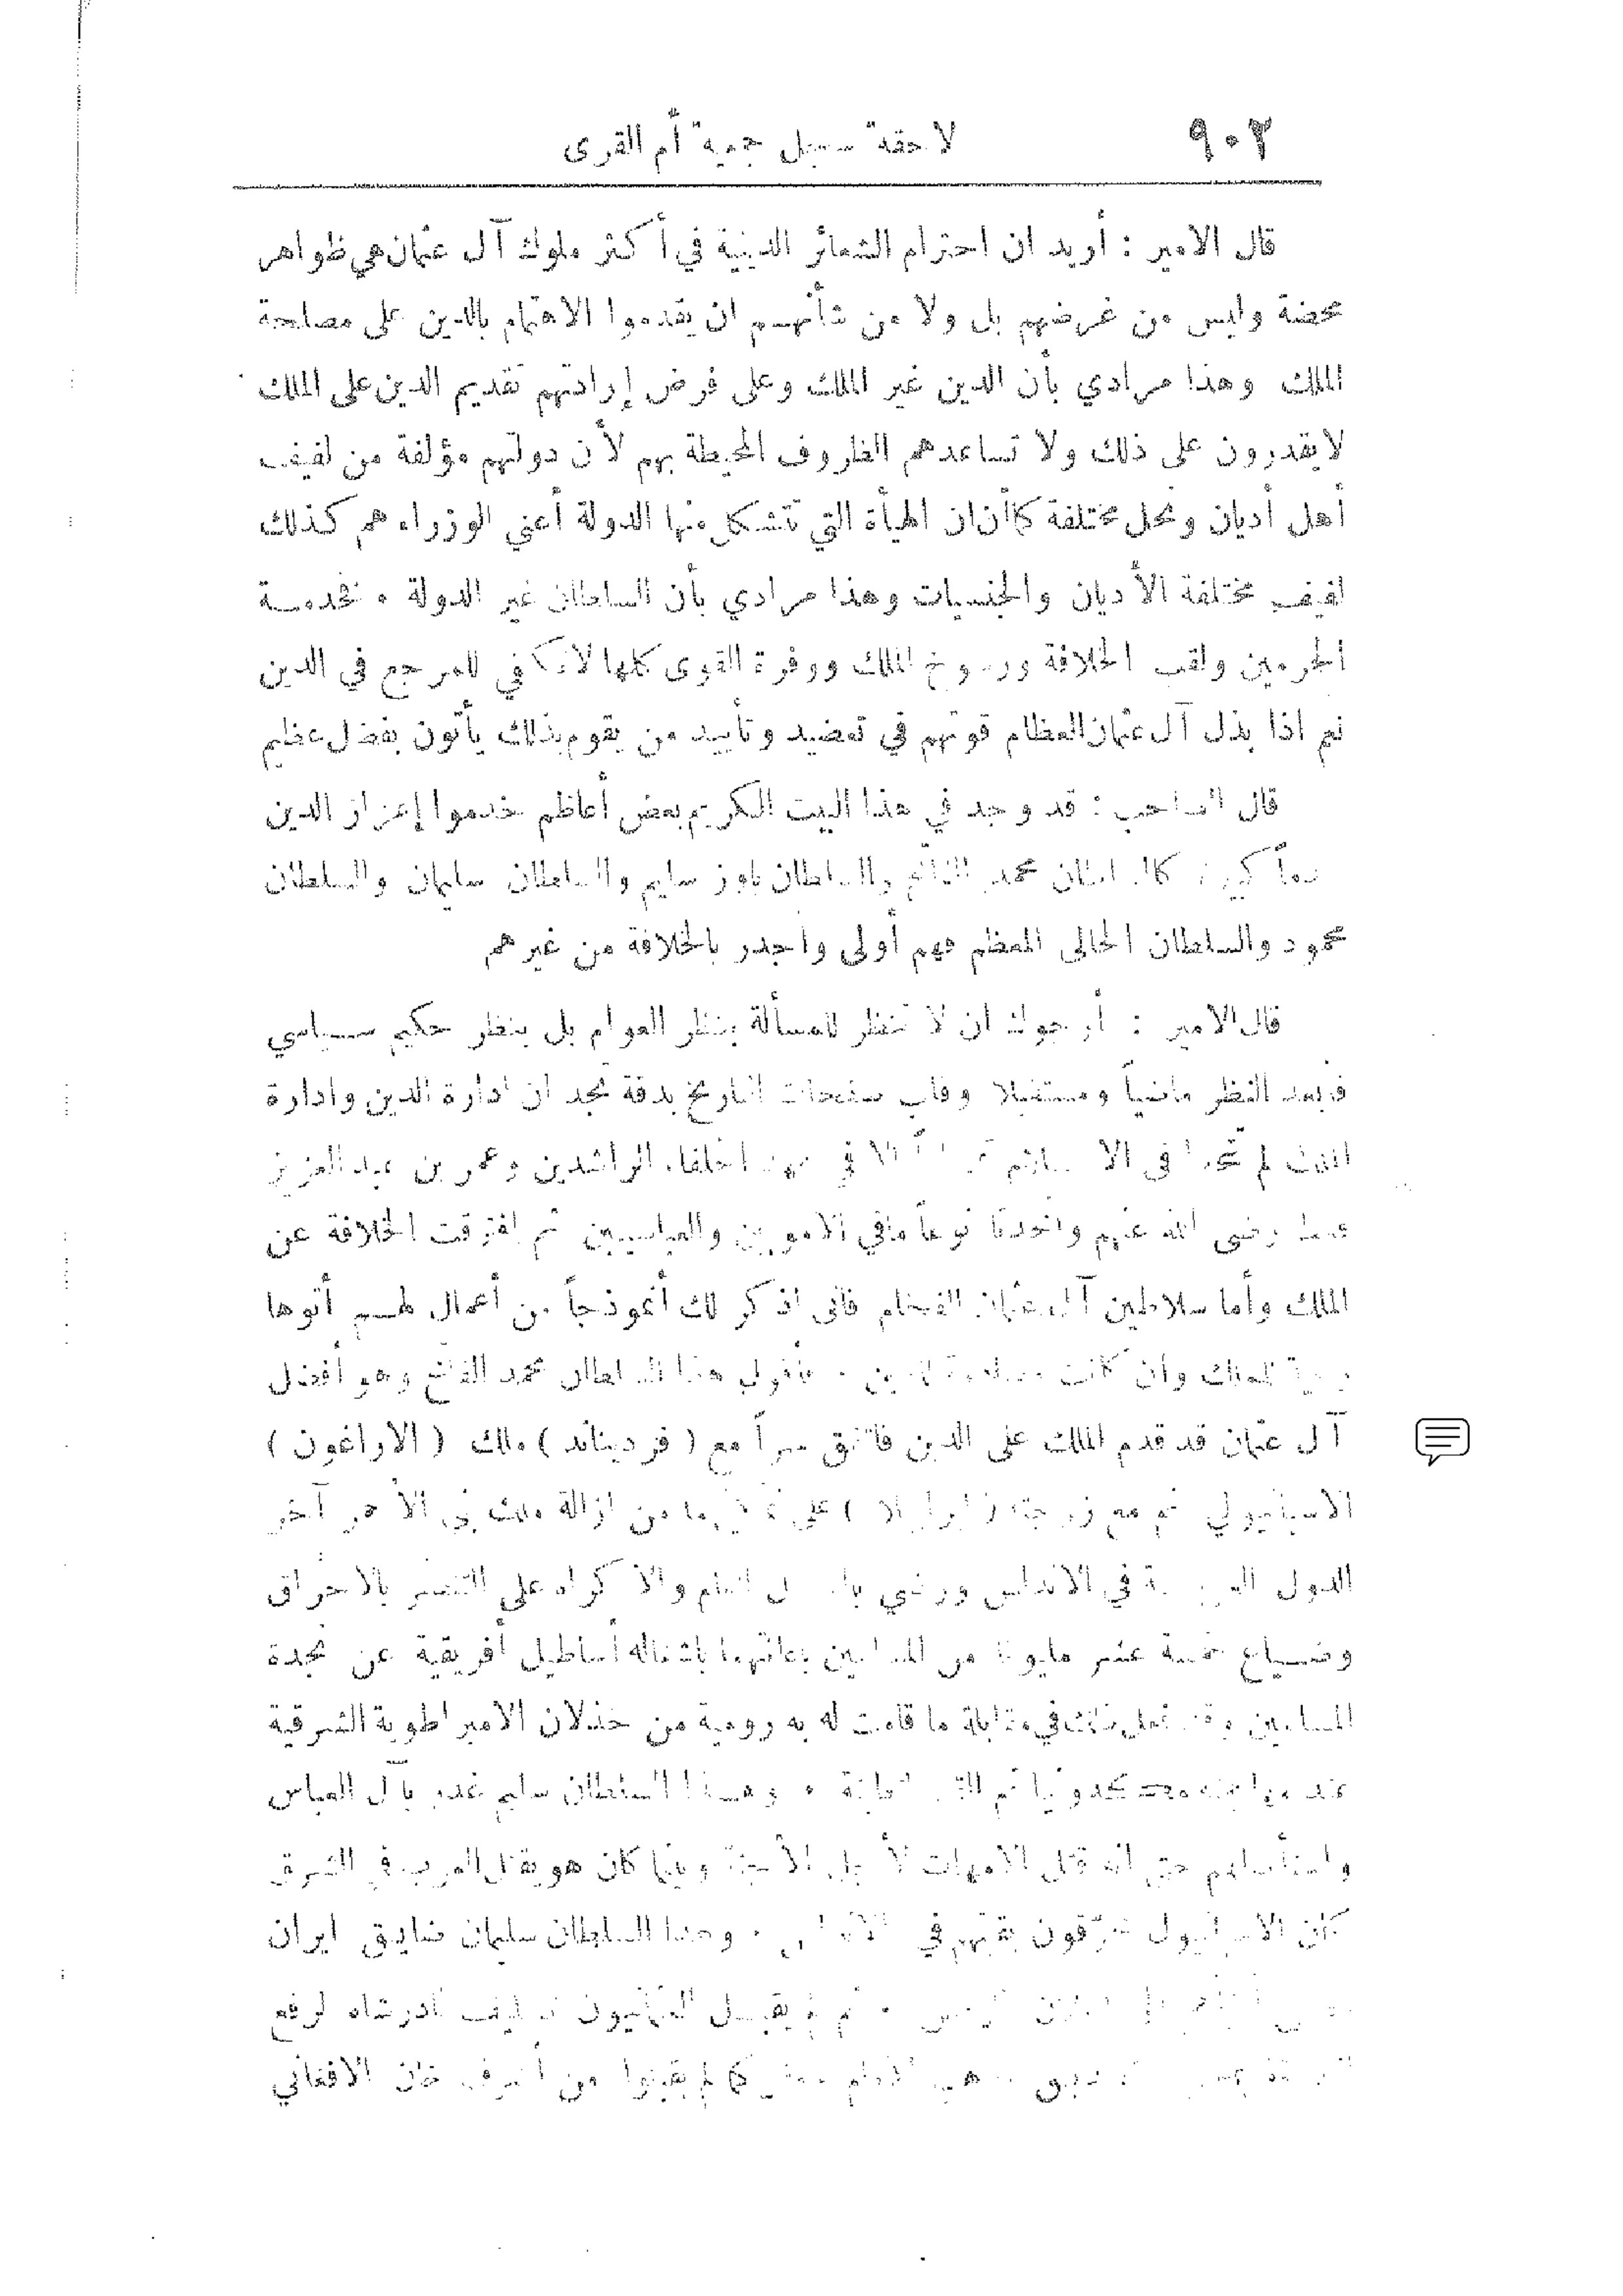 ٩٠٢ لاحقة سجل جمعية أم القرى
قال الامير : أريد ان احترام الشعائر الدينية في أكثر ملوك آل عثمان هي ظواهر
محضة وليس من غرضهم بل ولا من شأنهم ان يقدموا الاهتمام بالدين على مصلحة
الملك وهذا مرادي بأن الدين غير الملك وعلى فرض إرادتهم تقديم الدين على الملك
لا يقدرون على ذلك ولا تساعدهم الظروف المحيطة بهم لأن دولتهم مؤلفة من لفيف
أهل أديان ونحل مختلفة كما أن ان الهيأة التي تتشكل منها الدولة أعني الوزراء هم كذلك
لفيف مختلفة الأديان والجنسيات وهذا مرادي بأن السلطان غير الدولة . فخدمة
الحرمين ولقب الخلافة ورسوخ الملك ووفرة القوى كلها لا تكفي للمرجع في الدين
نعم اذا بذل آل عثمان العظام قوتهم في تعضيد وتأييد من يقوم بذلك يأتون بفضل عظيم
قال الصاحب : قد وجد في هذا البيت الكريم بعض أعاظم خدموا إعزاز الدين
كالسلطان محمد الفاتح والسلطان ياوز سليم والسلطان سليمان والسلطان
محمود والسلطان الحالي المعظم فهم أولى واجدر بالخلافة من غيرهم
قال الامير : أرجوك ان لا تنظر للمسألة بنظر العوام بل بنظر حكيم سياسي
فابعد النظر ماضياً ومستقبلا وقلب صفحات التاريخ بدقة تجد ان ادارة الدين وادارة
الملك لم تتحدا في الاسلام الا في عهد الخلفاء الراشدين وعمر بن عبد العزيز
فقط رضي الله عنهم واتحدتا نوعاً ما في الامويين والعباسيين ثم افترقت الخلافة عن
الملك وأما سلاطين آل عثمان الفخام فاني اذكر لك أنموذجاً من أعمال لهم أتوها
للملك وان كانت للدين . فأقول هذا السلطان محمد الفاتح وهو أفضل
آل عثمان قد قدم الملك على الدين فاتفق سراً مع ( فرديناند ) ملك ( الاراغون )
الاسبانيولي ثم مع زوجته ( ايزابيلا ) على تمكينهما من ازالة ملك بني الأحمر آخر
الدول العربية في الاندلس ورضي والاكراه على التنصر بالاحراق
وضياع خمسة عشر مليونا من المسلمين باعانتهما باشغاله أساطيل أفريقية عن نجدة
المسلمين وقد فعل ذلك في مقابلة ما قامت له به رومية من خذلان الامبراطورية الشرقية
عند مهاجمته مكدونيا ثم القسطنطينية . وهذا السلطان سليم غدر بآل العباس
واستأصلهم حتى انه قتل الامهات لأجل الأجنة وبينما كان هو يقتل العرب في الشرق
كان الاسبانيول يحرقون بقيتهم في . وهذا السلطان سليمان ضايق ايران
ثم لم يقبل العثمانيون تكليف نادر شاه لرفع
كما لم يقبلوا من أشرف خان الافغاني